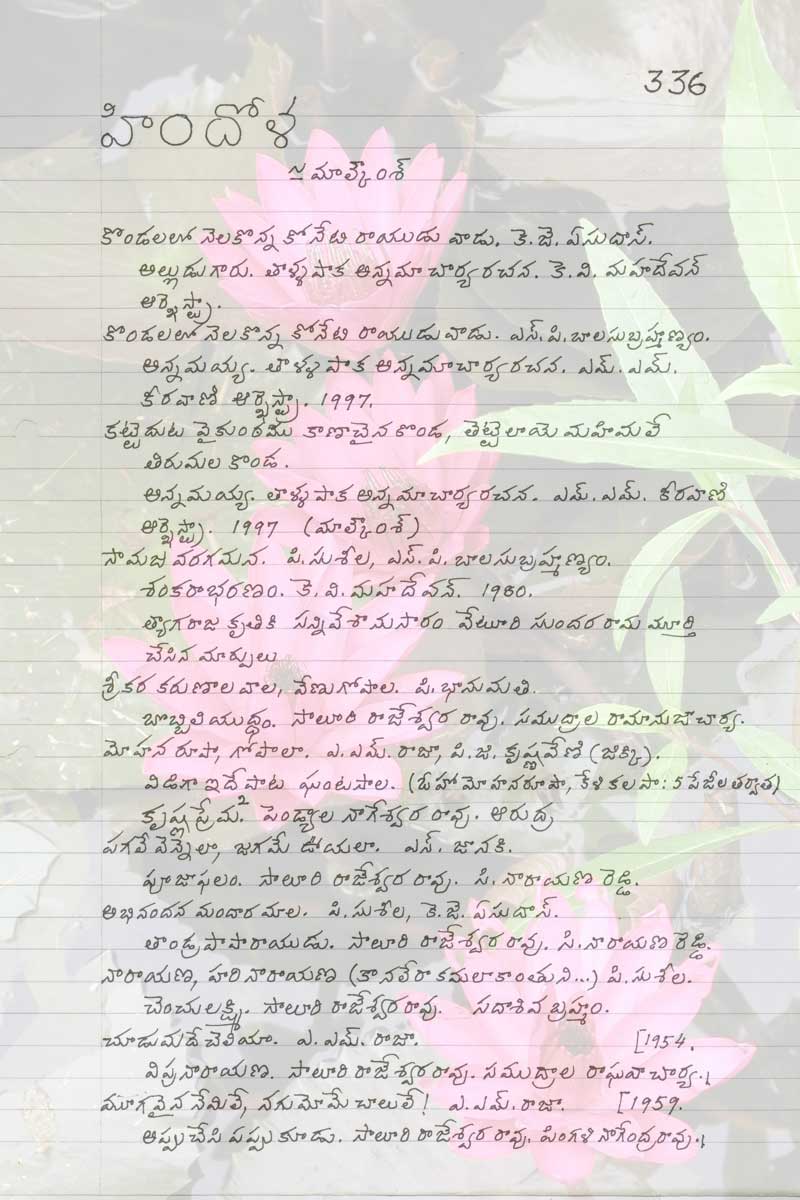 336
హిందోళ
≈ మాల్కౌంశ్
కొండలలో నెలకొన్న కోనేటి రాయుడు వాడు. కె.జె. ఏసుదాస్.
అల్లుడుగారు. తాళ్ళపాక అన్నమాచార్య రచన. కె.వి. మహదేవన్
ఆర్కెస్ట్రా.
కొండలలో నెలకొన్న కోనేటి రాయుడు వాడు. ఎస్.పి.బాలసుబ్రహ్మణ్యం.
అన్నమయ్య. తాళ్ళపాక అన్నమాచార్య రచన. ఎమ్.ఎమ్.
కీరవాణి ఆర్కెస్ట్రా. 1997.
కట్టెదుట వైకుంఠము కాణాచైన కొండ, తెట్టెలాయె మహిమలే
తిరుమల కొండ.
అన్నమయ్య. తాళ్ళపాక అన్నమాచార్య రచన. ఎమ్.ఎమ్. కీరవాణి
ఆర్కెస్ట్రా. 1997 (మాల్కౌంశ్)
సామజ వరగమన. పి.సుశీల, ఎస్.పి.బాలసుబ్రహ్మణ్యం.
శంకరాభరణం. కె.వి.మహదేవన్. 1980.
త్యాగరాజ కృతికి సన్నివేశానుసారం వేటూరి సుందర రామ మూర్తి
చేసిన మార్పులు
శ్రీకర కరుణాలవాల, వేణుగోపాల. పి.భానుమతి.
బొబ్బిలి యుద్ధం. సాలూరి రాజేశ్వర రావు. సముద్రాల రామానుజాచార్య.
మోహన రూపా, గోపాలా. ఎ.ఎమ్.రాజా, పి.జి.కృష్ణవేణి (జిక్కి).
విడిగా ఇదే పాట ఘంటసాల. (ఓహో మోహనరూపా, కేళీ కలాపా: 5 పేజీల తర్వాత)
కృష్ణప్రేమ². పెండ్యాల నాగేశ్వర రావు. ఆరుద్ర
పగలే వెన్నెలా, జగమే ఊయలా. ఎస్. జానకి.
పూజాఫలం. సాలూరి రాజేశ్వర రావు. సి.నారాయణ రెడ్డి.
అభినందన మందారమాల. పి.సుశీల, కె.జె. ఏసుదాస్.
తాండ్రపాపారాయుడు. సాలూరి రాజేశ్వర రావు. సి.నారాయణ రెడ్డి.
నారాయణ, హరి నారాయణ (కానలేరా కమలాకాంతుని...) పి.సుశీల.
చెంచులక్ష్మి. సాలూరి రాజేశ్వర రావు. సదాశివ బ్రహ్మం.
చూడుమదే చెలియా. ఎ.ఎమ్.రాజా. [1954.
విప్రనారాయణ. సాలూరి రాజేశ్వర రావు. సముద్రాల రాఘవాచార్య.
మూగవైన నేమిలే, నగుమోమే చాలులే! ఎ.ఎమ్.రాజా. [1959.
అప్పుచేసి పప్పు కూడు. సాలూరి రాజేశ్వర రావు. పింగళి నాగేంద్రరావు.